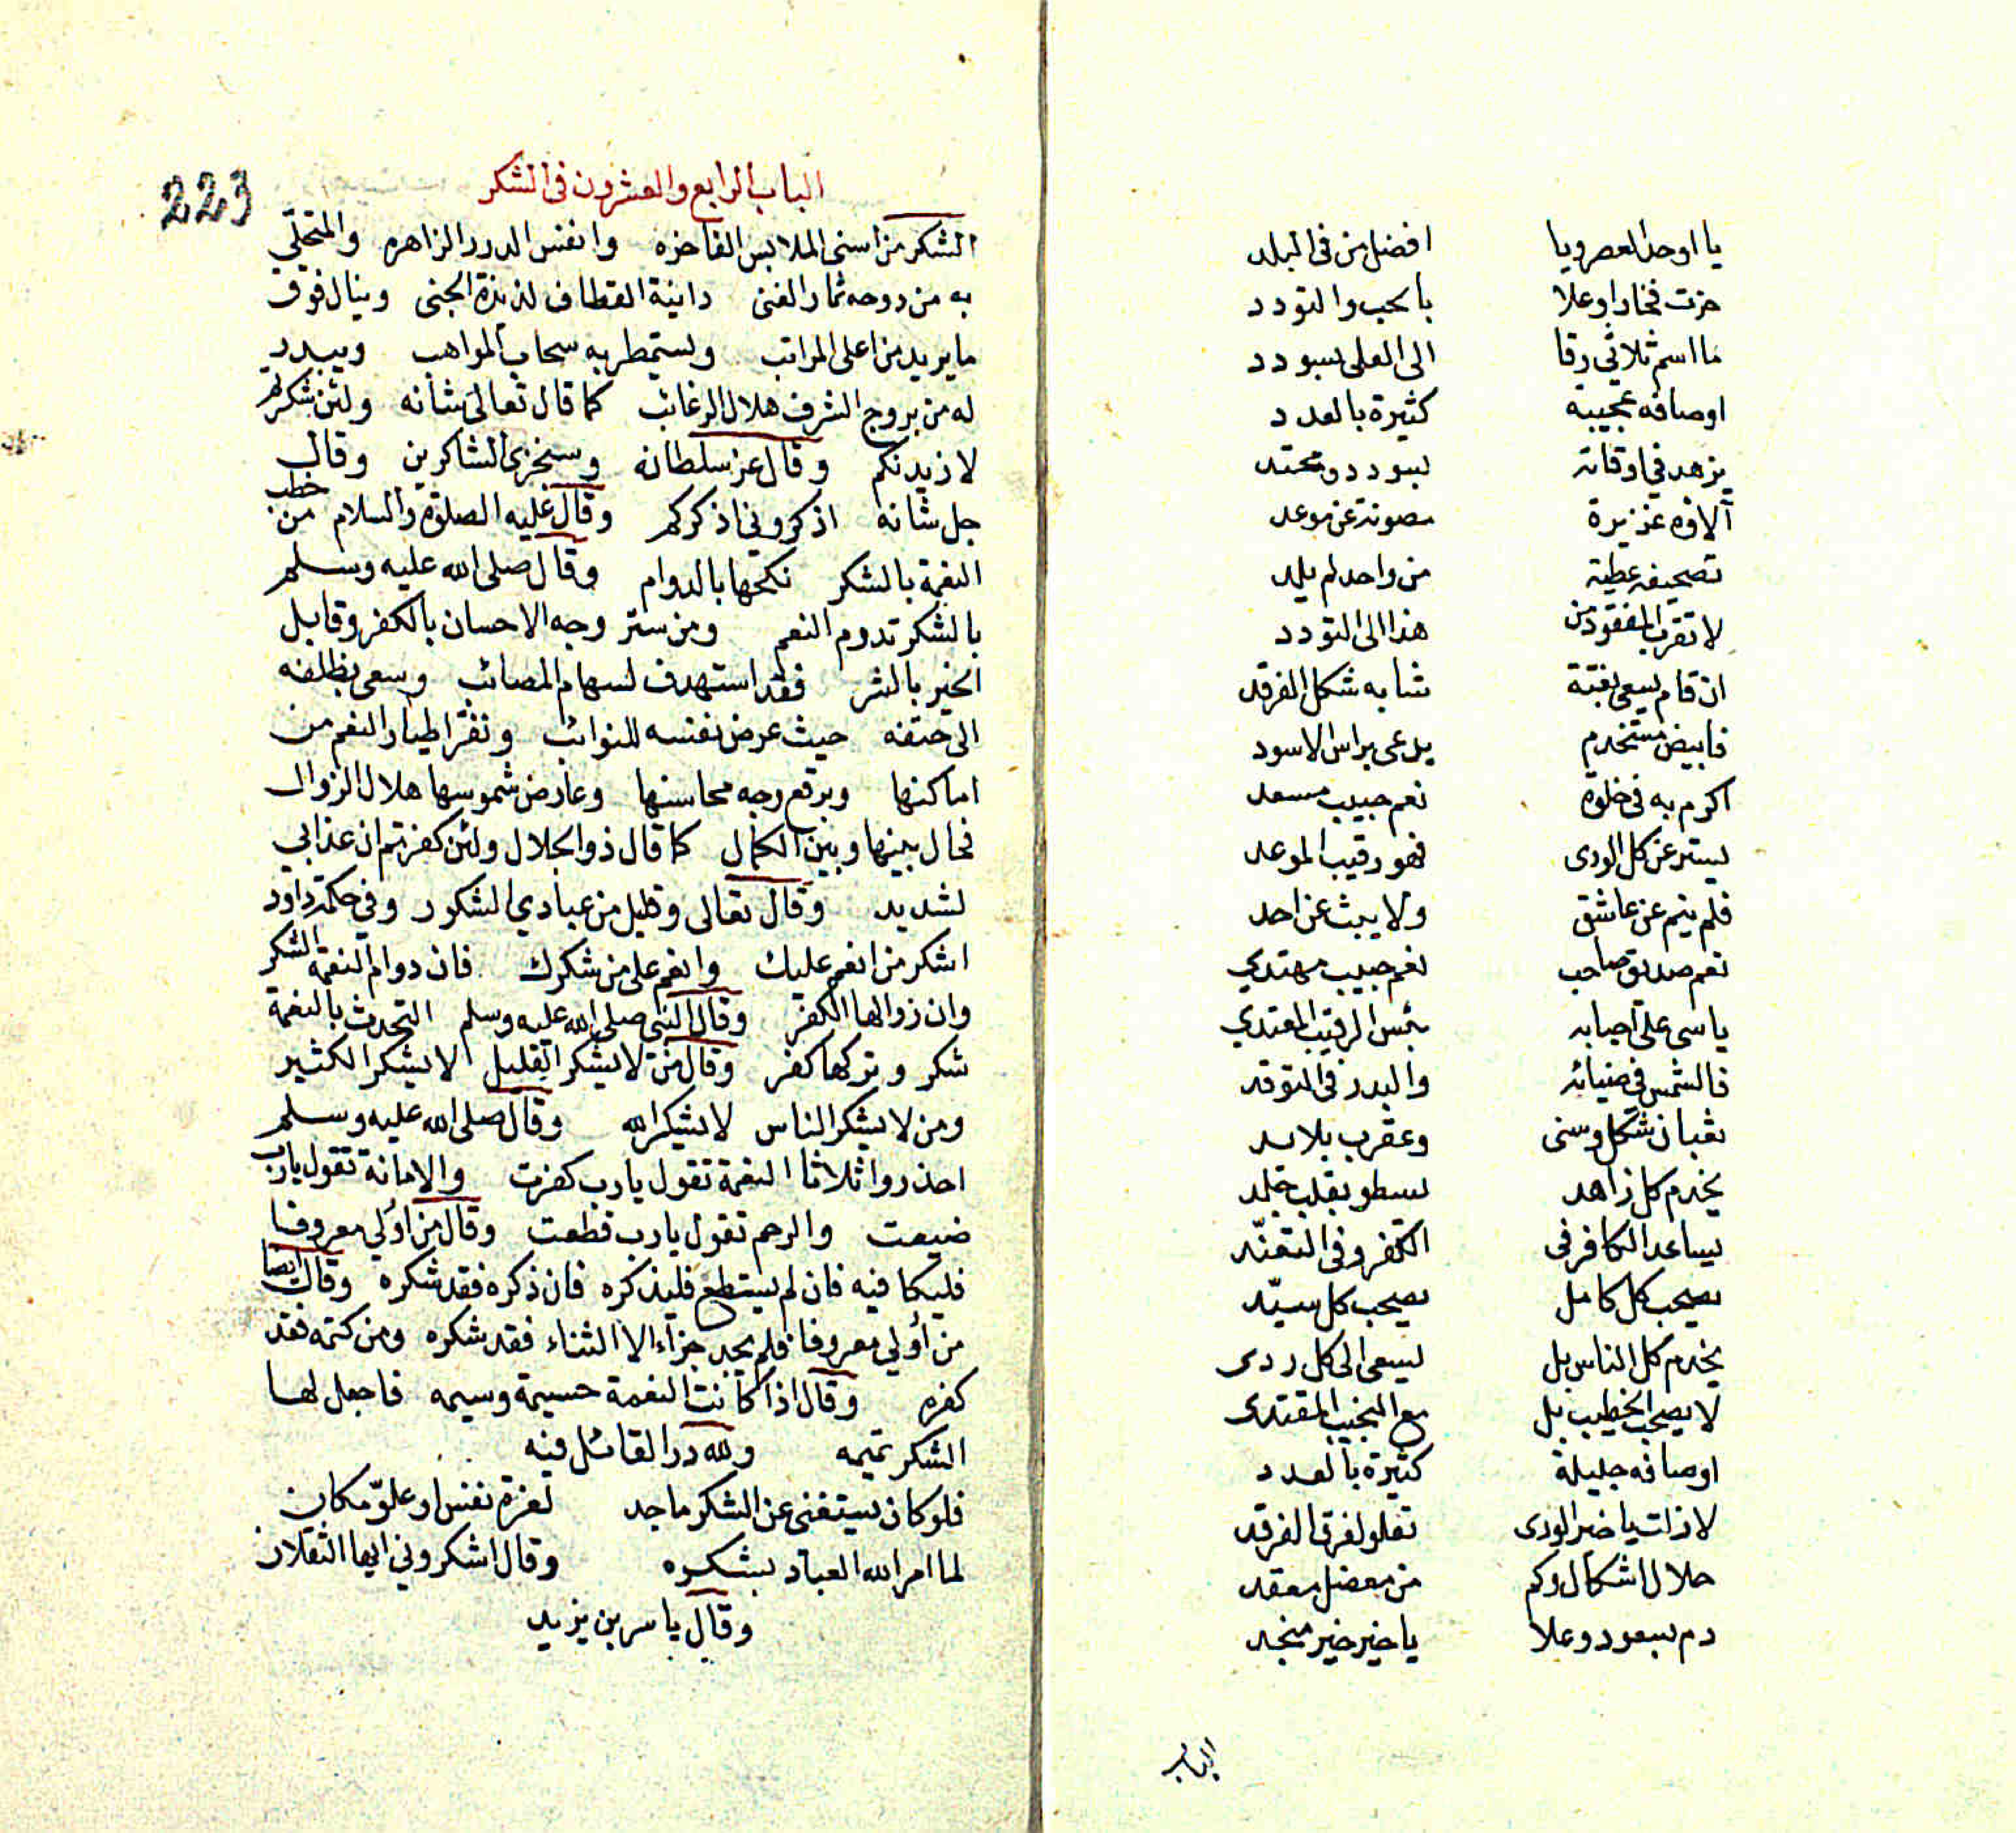 يا اوحد العصر ويا افضل من في البلد
حزت فخارا وعلا بالحب والتودد
ما اسم ثلاثي رقا الى العلى بسودد
اوصافه عجيبة كثيرة بالعدد
يزهد في اوقاته بسودد ومحتد
آلاؤه عزيزة مصونة عن موعد
تصحيفه عطية من واحد لم يلد
لا تقرب المفقود من هذا الى التودد
ان قام يسعى بغتة شابه شكل الفرقد
فابيض مستخدم يدعى براس الاسود
اكرم به في خلوة نعم حبيب مسعد
يستر عن كل الورى فهو رقيب الموعد
فلم ينم عن عاشق ولا يبث عن احد
نعم صديق صاحب نعم حبيب مهتدي
ياسى على احبابه بئس الرقيب المعتدي
فالشمس في ضيائه والبدر في التوقد
ثعبان شكل وسنى وعقرب بلا يد
يخدم كل زاهد يسطو بقلب جلد
يساعد الكافر في الكفر وفي التفند
يصحب كل كامل يصحب كل سيّد
يخدم كل الناس بل يسعى الى كل ردى
لا يصحب الخطيب بل مع النجيب المقتدى
اوصافه جليلة كثيرة بالعدد
لا زلت يا خير الورى تعلو لفرق الفرقد
حلال اشكال وكم من معضل معقد
دم بسعود وعلا يا خير خير منجد
الباب
223
الباب الرابع والعشرون في الشكر
الشكر من اسنى الملابس الفاخره وانفس الدرر الزاهره والمتحلّي
به من دوحه ثمار الغنى دانية القطاف لذيذة الجنى وينال فوق
ما يريد من اعلى المراتب ويستمطر به سحاب المواهب ويبدر
له من بروج الشرف هلال الرغائب كما قال تعالى شانه ولئن شكرتم
لازيدنكم وقال عز سلطانه وسنجزى الشاكرين وقال
جل شانه اذكروني اذكركم وقال عليه الصلوة والسلام من خطب
النعمة بالشكر نكحها بالدوام وقال صلى الله عليه وسلم
بالشكر تدوم النعم ومن ستر وجه الاحسان بالكفر وقابل
الخير بالشر فقد استهدف لسهام المصائب وسعى بظلفه
الى حتفه حيث عرض نفسه للنوائب ونفّر اطيار النعم من
اماكنها وبرقع وجه محاسنها وعارض شموسها هلال الزوال
فحال بينها وبين الكمال كما قال ذو الجلال ولئن كفرتم ان عذابي
لشديد وقال تعالى وقليل من عبادي الشكور وفي حكمة داود
اشكر من انعم عليك وانعم على من شكرك فان دوام النعمة الشكر
وان زوالها الكفر وقال النبي صلى الله عليه وسلم التحدث بالنعمة
شكر وتركها كفر وقال من لا يشكر القليل لا يشكر الكثير
ومن لا يشكر الناس لا يشكر الله وقال صلى الله عليه وسلم
احذروا ثلاثا النعمة تقول يارب كفرت والامانة تقول يارب
ضيعت والرحم تقول يارب قطعت وقال من اولي معروفا
فليكافيه فان لم يستطع فليذكره فان ذكره فقد شكره وقال ايضا
من اولي معروفا فلم يجد جزآء الا الثناء فقد شكره ومن كتمه فقد
كفره وقال اذا كانت النعمة جسيمة وسيمه فاجعل لها
الشكر تميمه ولله در القائل فيه
فلو كان يستغنى عن الشكر ماجد لعزة نفس او علوّ مكان
لما امر الله العباد بشكره وقال اشكروني ايها الثقلان
وقال ياسر بن يزيد